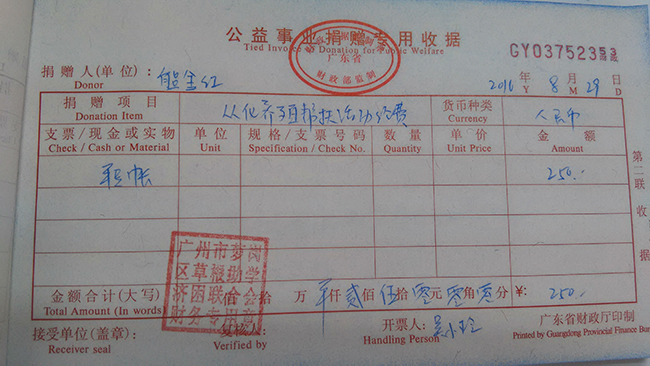 公益事业捐赠专用收据
Tied Invoice of Donation for Public Welfare
广东省
财政部监制
GY03752353
捐赠人(单位): 熊金红
Donor
2016 年 8 月 29 日
Y M D
捐赠项目 从化养殖帮扶活动经费 货币种类 人民币
Donation Item Currency
支票/现金或实物 单位 规格/支票号码 数量 单价 金额
Check / Cash or Material Unit Specification / Check No. Quantity Unit Price Amount
转帐 250.-
第二联 收据
广州市萝岗
区草根助学
济困联合会
财务专用章
金额合计(大写) 佰 拾 万 仟 贰 佰 伍 拾 零 元 零 角 零 分 ¥: 250.-
Total Amount (In words)
接受单位(盖章): 复核人: 开票人: 广东省财政厅印制
Receiver seal Verified by Handling Person Printed by Guangdong Provincial Finance Bur